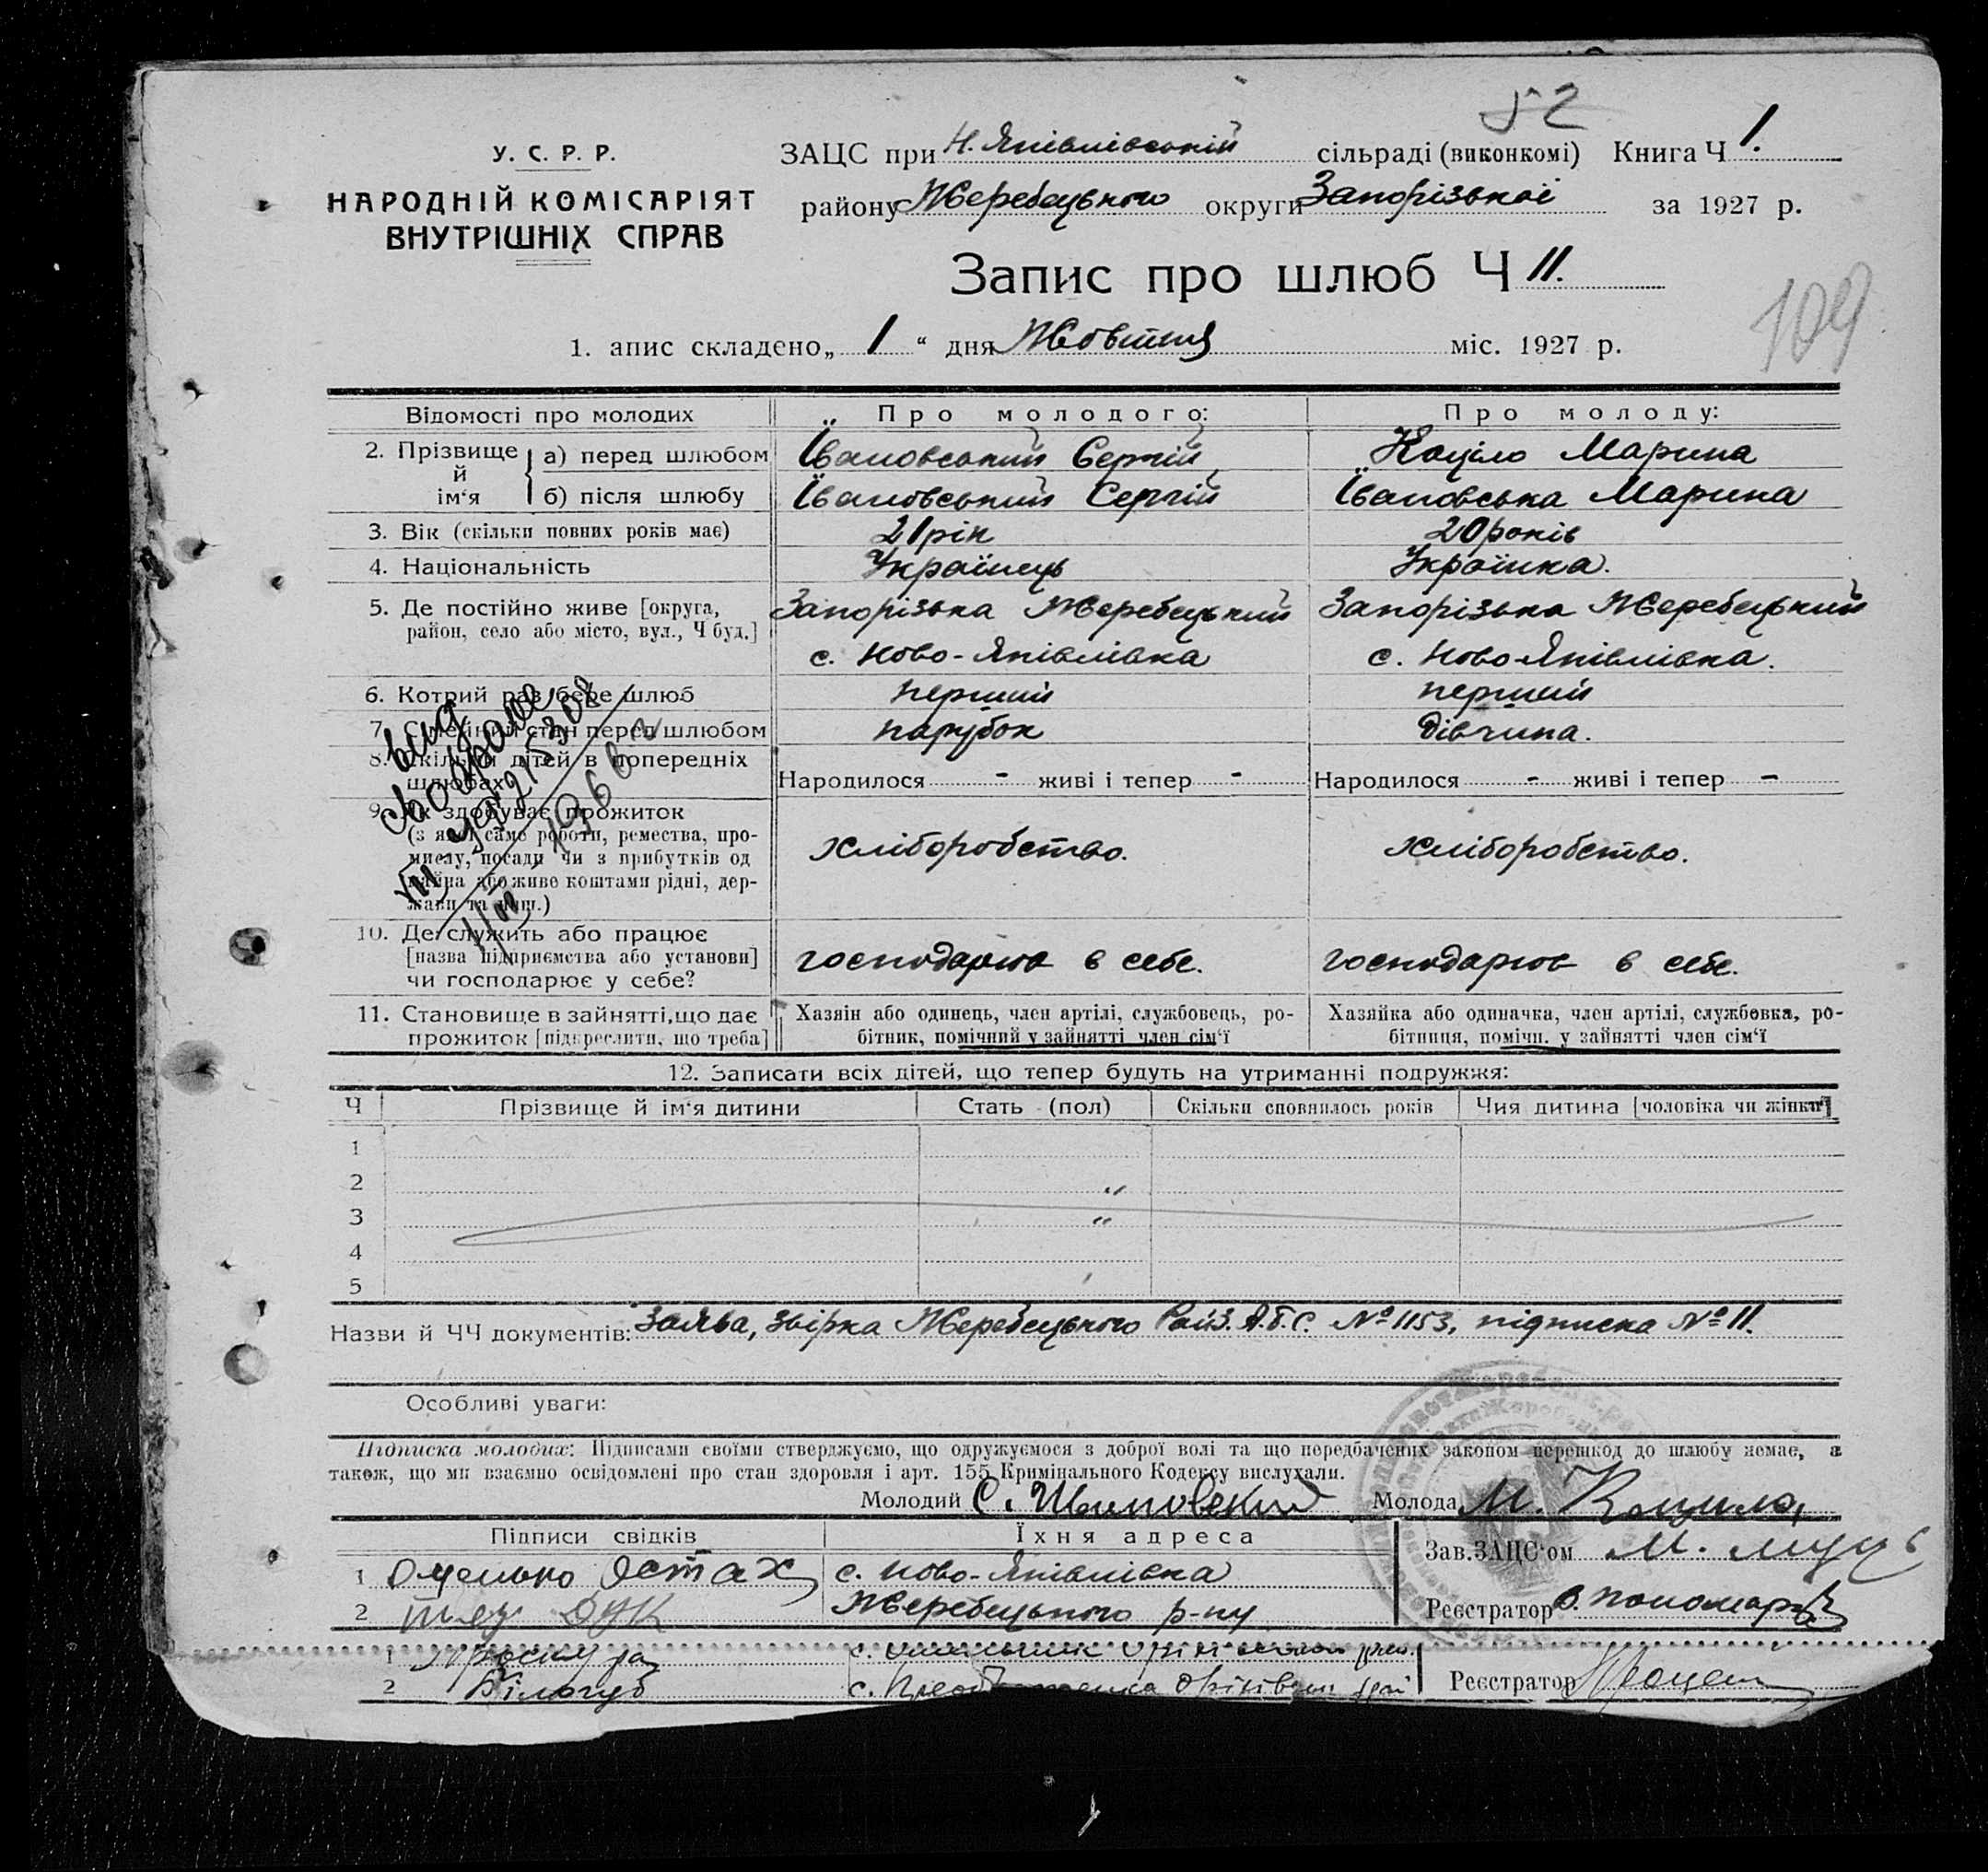 52
У. С. Р. Р.
НАРОДНІЙ КОМІСАРІЯТ
ВНУТРІШНІХ СПРАВ
ЗАЦС при Н. Яківлівській сільраді (виконкомі) Книга Ч 1.
району Жеребецького округи Запорізької за 1927 р.
Запис про шлюб Ч 11.
109
1. апис складено „ 1 “ дня Жовтня міс. 1927 р.
Відомості про молодих Про молодого: Про молоду:
2. Прізвище й ім‘я а) перед шлюбом Івановський Сергій Коціло Марина
б) після шлюбу Івановський Сергій Івановська Марина
3. Вік (скільки повних років має) 21 рік 20 років
4. Національність Українець Українка.
5. Де постійно живе [округа, Запорізька Жеребецький Запорізька Жеребецький
район, село або місто, вул., Ч буд.]
с. Ново-Яківлівка с. Ново-Яківлівка.
6. Котрий раз бере шлюб перший перший
7. Сімейний стан перед шлюбом парубок дівчина.
8. Скільки дітей в попередніх
шлюбах Народилося - живі і тепер - Народилося - живі і тепер -
9. Як здобуває прожиток
(з якої саме роботи, ремества, про-
мислу, посади чи з прибутків од хліборобство. хліборобство.
майна або живе коштами рідні, дер-
жави та инш.)
10. Де служить або працює
[назва підприємства або установи] господарює в себе. господарює в себе.
чи господарює у себе?
11. Становище в зайнятті, що дає Хазяін або одинець, член артілі, службовець, ро- Хазяйка або одиначка, член артілі, службовка, ро-
прожиток [підкреслити, що треба] бітник, помічний у зайнятті член сім‘ї бітниця, помічн. у зайнятті член сім‘ї
12. Записати всіх дітей, що тепер будуть на утриманні подружжя:
Ч Прізвище й ім‘я дитини Стать (пол) Скільки сповнилось років Чия дитина [чоловіка чи жінки]
1
2
3
4
5
Назви й ЧЧ документів: Заява, звірка Жеребецького Рай З.А.Г.С. № 1153, підписка № 11.
Особливі уваги:
Підписка молодих: Підписами своїми стверджуємо, що одружуємося з доброї волі та що передбачених законом перешкод до шлюбу немає, а
також, що ми взаємно освідомлені про стан здоровля і арт. 155 Кримінального Кодексу вислухали.
Молодий С. Молода М.
Підписи свідків Їхня адреса
Зав. ЗАЦС‘ом М.
1 Остах с. Ново-Яківлівка
2 Жеребецького р-ну Реєстратор
1 с.
2 Білогуб с. Реєстратор